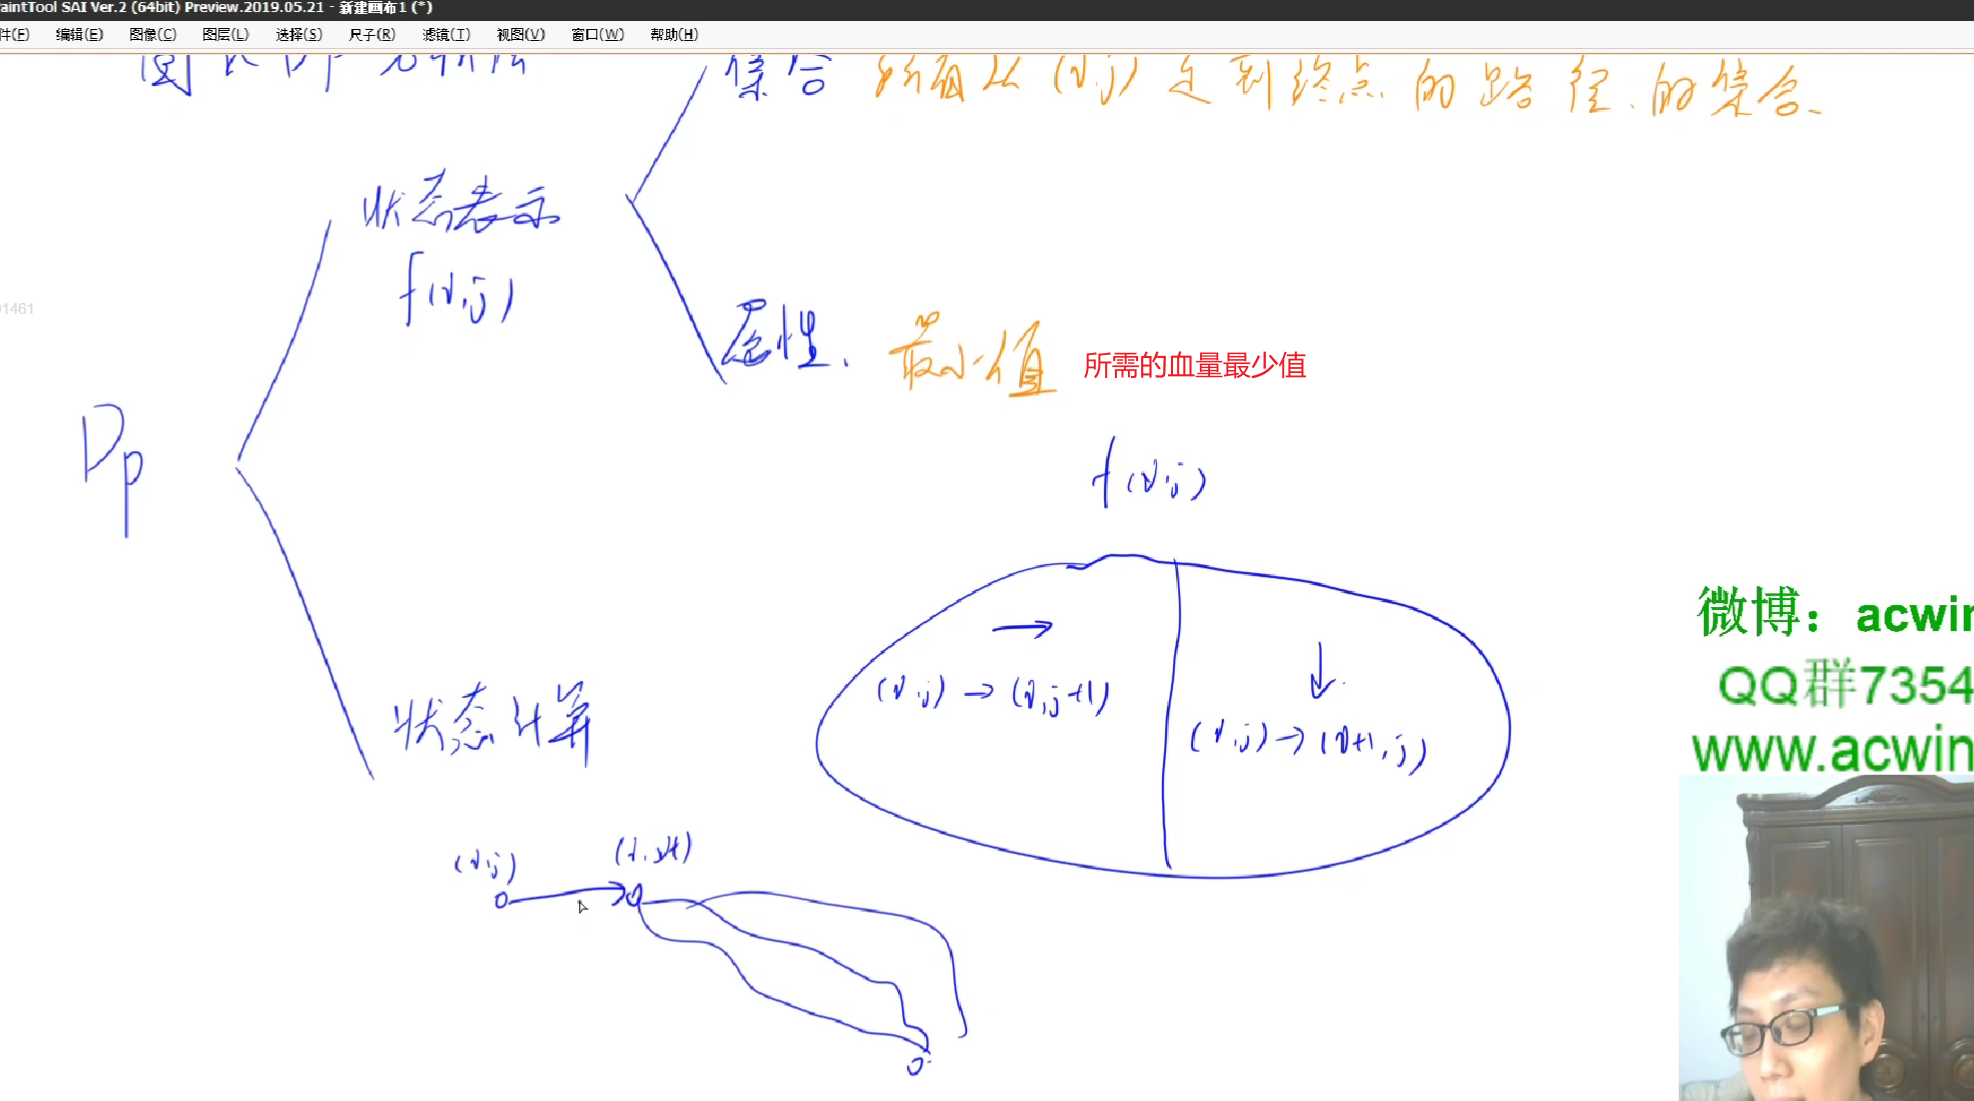 PaintTool SAI Ver.2 (64bit) Preview.2019.05.21 - 新建画布1 (*)
件(F) 编辑(E) 图像(C) 图层(L) 选择(S) 尺子(R) 滤镜(T) 视图(V) 窗口(W) 帮助(H)
集合 所有从(i,j)走到终点的路径.的集合.
状态表示
f(i,j)
1461
属性. 最小值 所需的血量最少值
Dp
f(i,j)
(i,j) → (i,j+1)
(i,j) → (i+1,j)
状态计算
(i,j) (i,j+1)
微博：acwin
QQ群7354
www.acwin